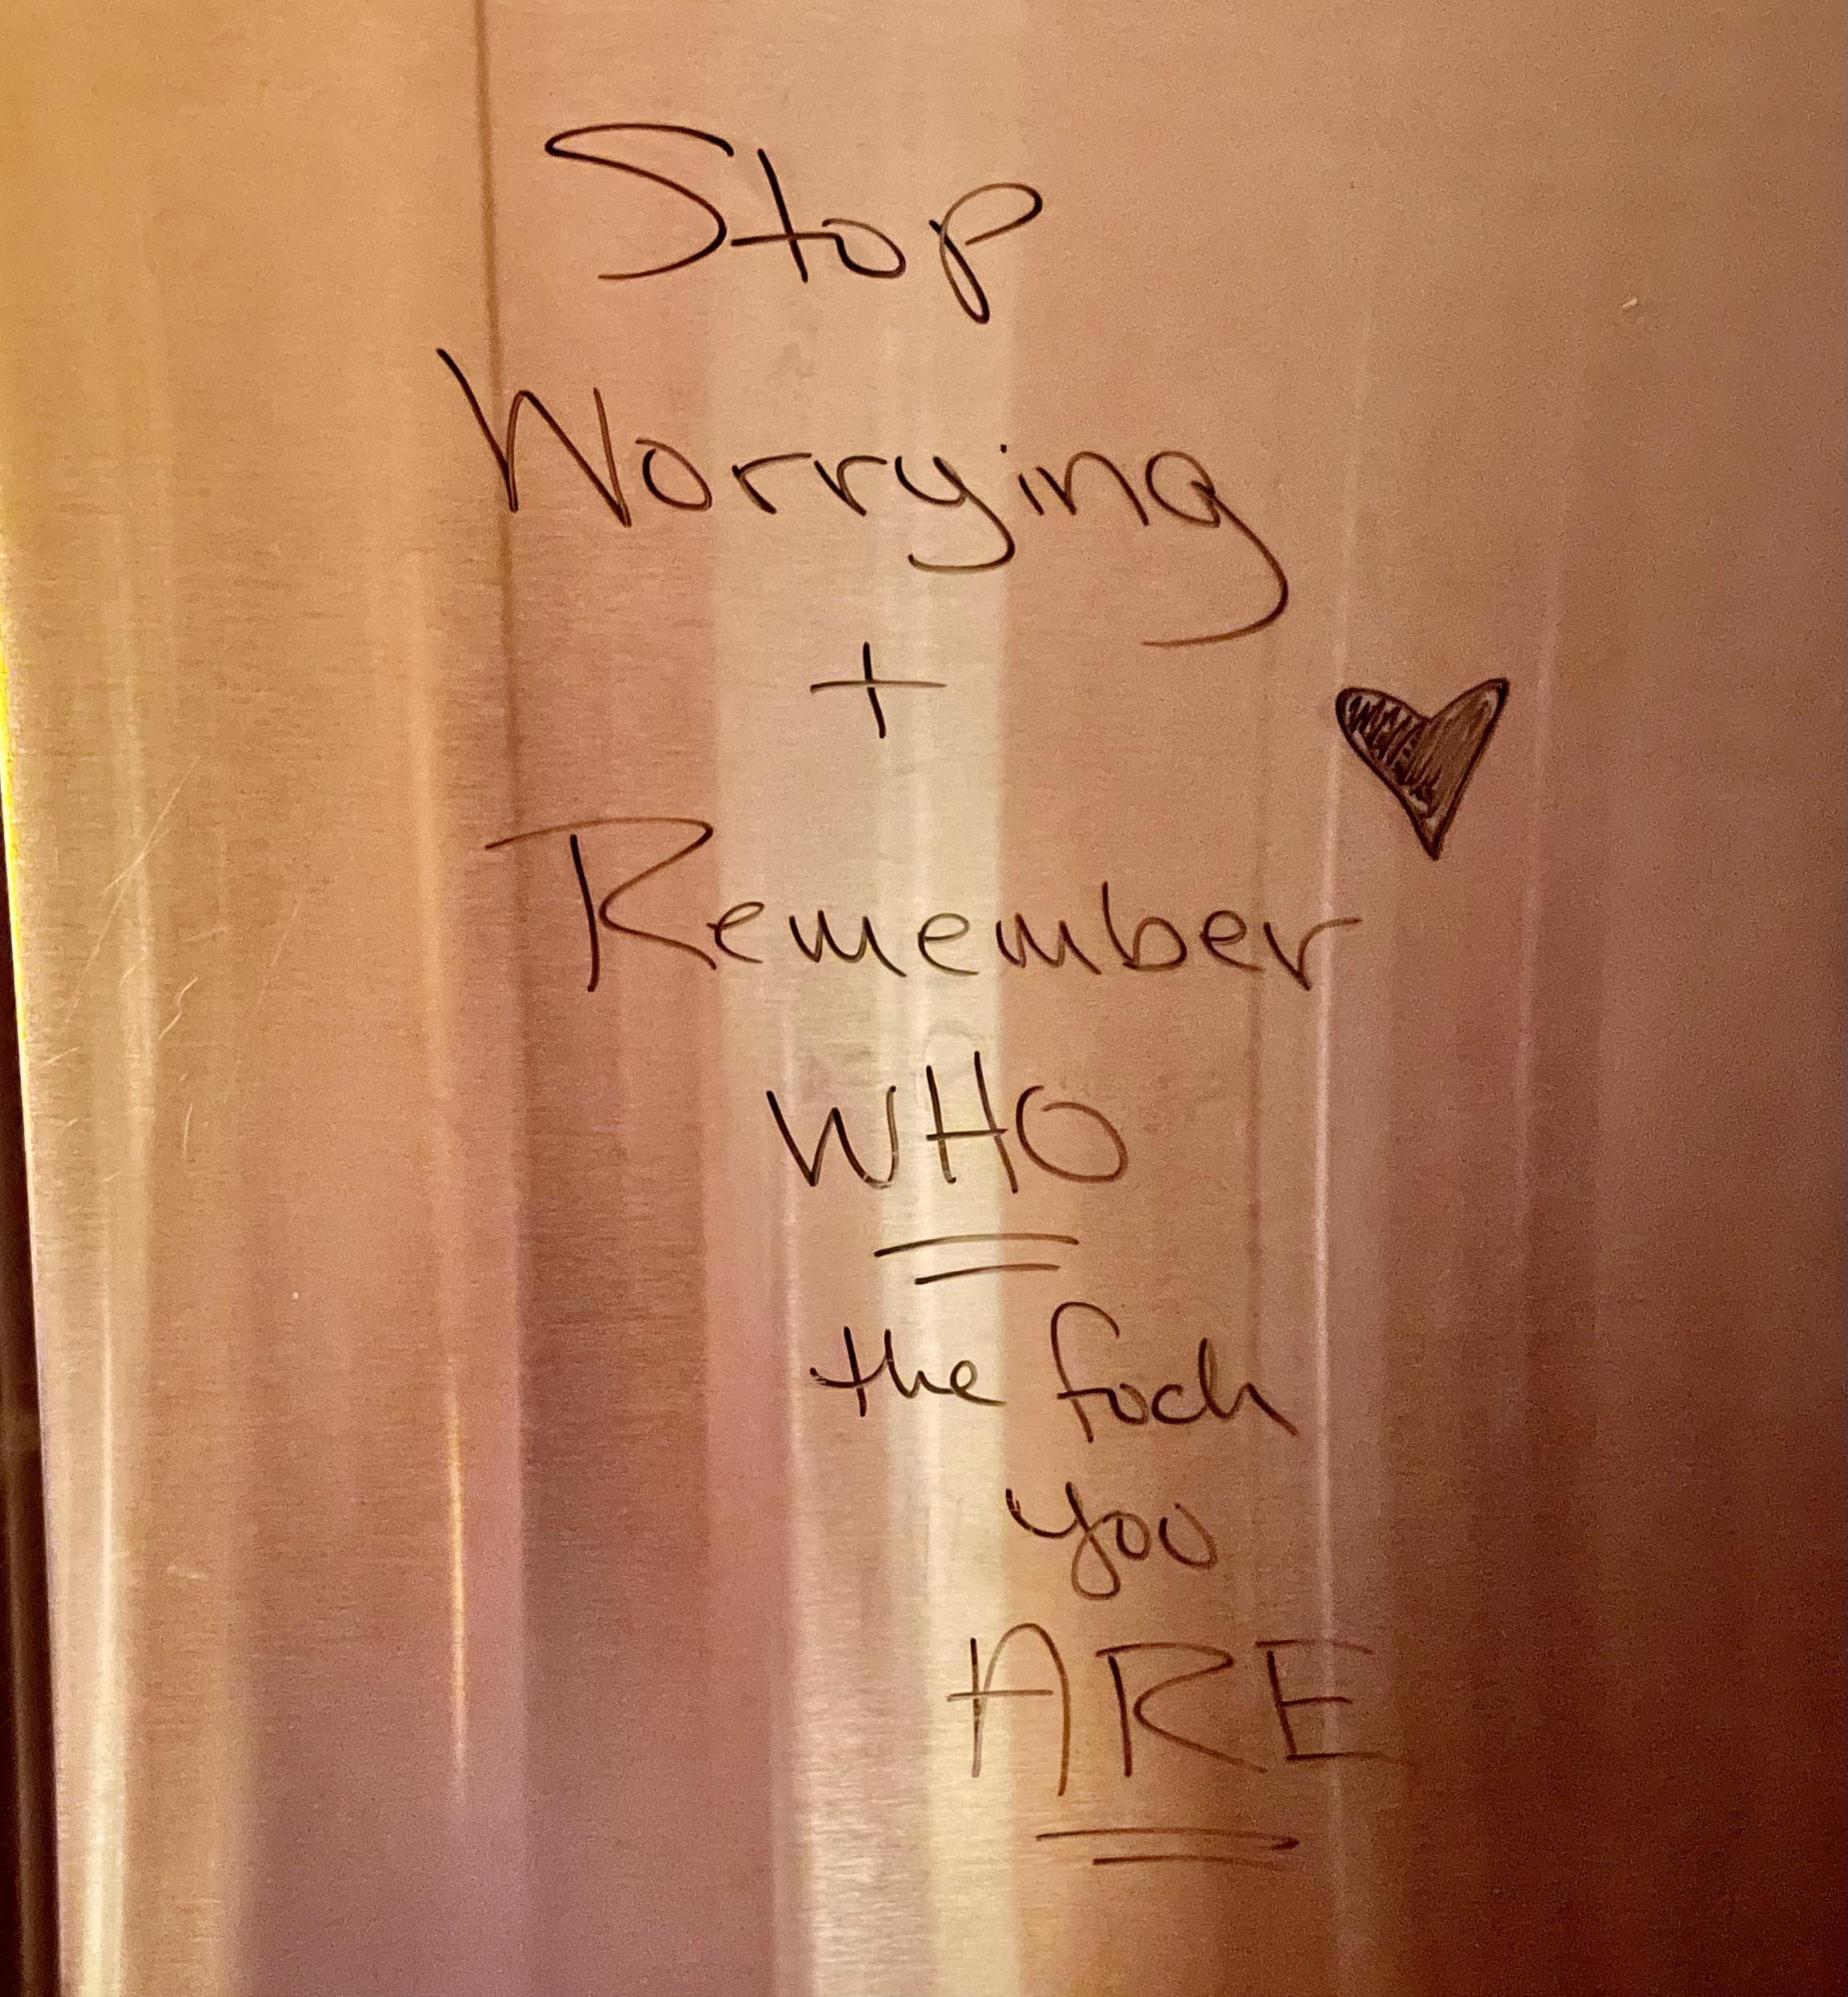 Stop
Worrying
+
Remember
WHO
the fock
you
ARE